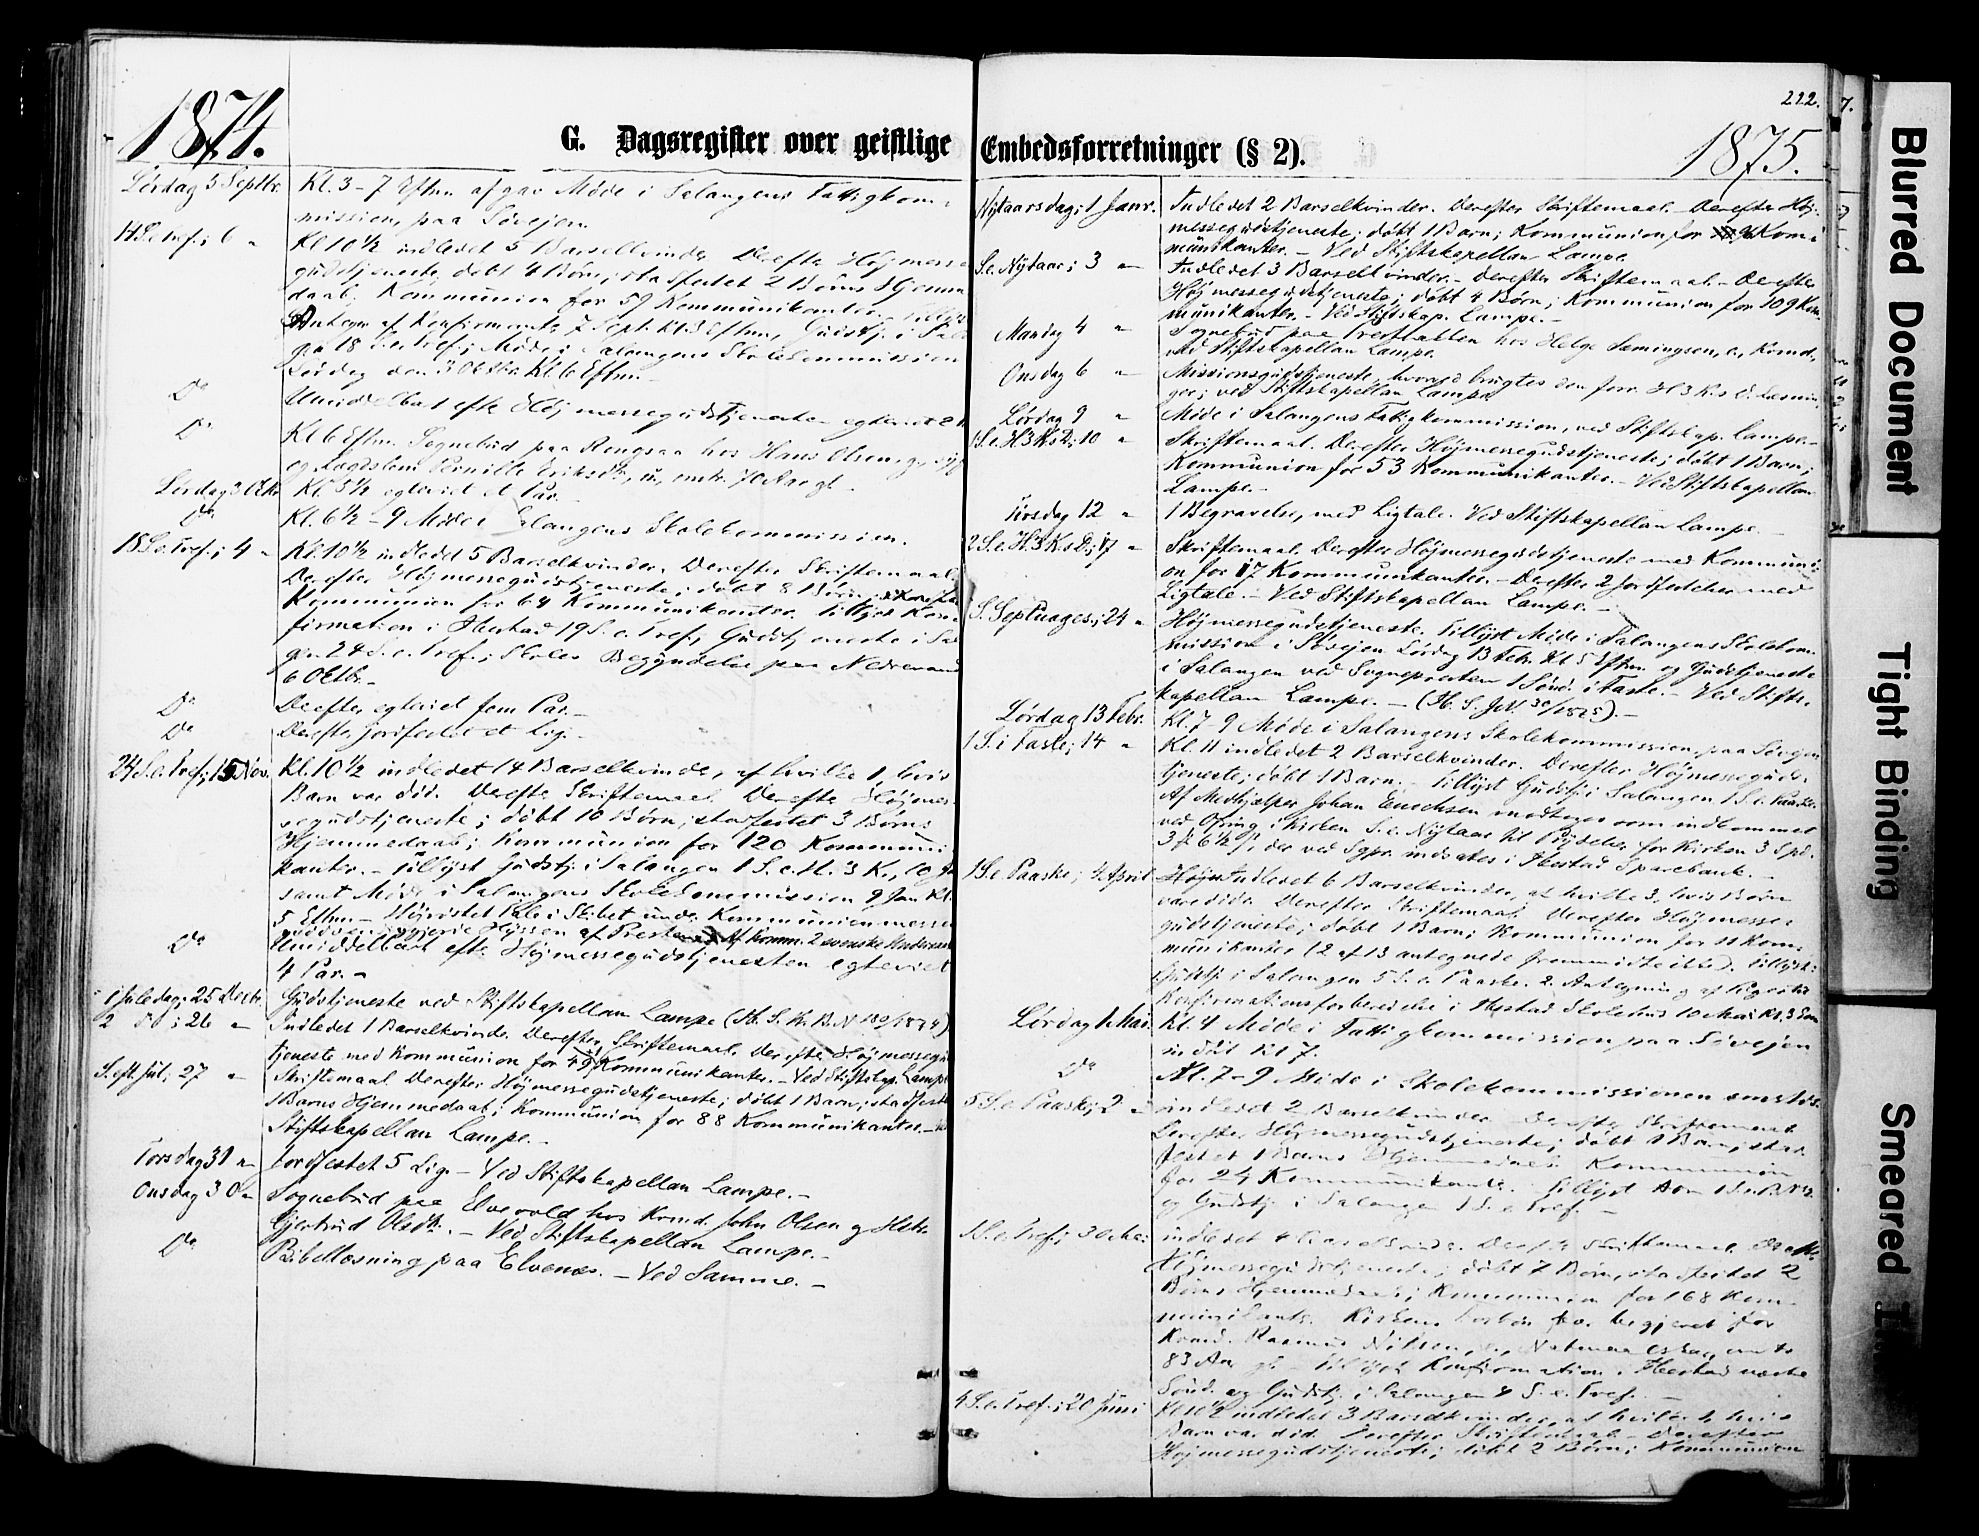 1874.
G. Dagsregister over geistlige
Lørdag 5 Septbr.
Kl. 3-7 Eftm. afgav Møde i Salangens Fattigkom-
mission, paa Søvejen.
14 S. e. Tref.; 6 "
Kl 10 1/2 indledet 5 Barselkvinder. Derefter Højmesse-
gudstjeneste, døbt 4 Børn; stadfestet 2 Børns Hjemme-
daab; Kommunion for 59 Kommunikanter.
af Konfirmanter 7 Sept. Kl 3 Eftm, Gudstj. i
18 S. e. Tref.; Møde i Salangens Skolekommission
Lørdag den 3 Oktbr. Kl. 6 Eftm.
Do
Umiddelbart efter Højmessegudstjenesten egteviet 2
Do
Kl 6 Eftm. Sognebud paa hos Hans Olsen,
og Pernille
Lørdag 3 Oktbr.
Kl. 5 1/2 egteviet et Par.
Do
Kl. 6 1/2 - 9 Møde i Salangens Skolekommission.
18 S. e. Tref.; 4 "
Kl. 10 1/2 indledet 5 Barselkvinder. Derefter Skriftemaal.
Derefter Højmessegudstjeneste; døbt 8 Børn;
Kommunion for 64 Kommunikanter. Tillyst Kon-
firmation i Ibestad 19 S. e. Tref., Gudstjeneste i Sal
24 S. e. Tref.; Skoles Begyndelse paa
6 Oktb.-
Do
Derefter egteviet fem Par.-
Do
Derefter jordfestet et Lig.-
24 S. e. Tref.; 15 Nov.
Kl. 10 1/2 indledet 14 Barselkvinder, af hvilke 1, hvis
Barn var død. Derefter Skriftemaal. Derefter Højmes-
segudstjeneste; døbt 10 Børn; stadfestet 3 Børns
Hjemmedaab; Kommunion for 120 Kommuni-
kanter. - Tillyst Gudstj. i Salangen 1 S. e. H. 3 K., 10
samt Møde i Salangens Skolekommission 9 Jan Kl.
5 Eftm -
Do
Umiddelbart efter Højmessegudstjenesten egteviet
4 Par.-
1 Juledag; 25 Decbr.
Gudstjeneste ved Stiftskapellan Lampe
2 Do; 26 "
Indledet 1 Barselkvinde. Derefter Skriftemaal. Derefter Højmessegud
tjeneste med Kommunion for 49 Kommunikanter. - Ved Stiftskap. Lampe
S. eft. Jul; 27 "
Skriftemaal. Derefter Højmessegudstjeneste; døbt 1 Barn; stadfestet
1 Barns Hjemmedaab; Kommunion for 88 Kommunikanter.-
Stiftskapellan Lampe.-
Torsdag 31 "
Jordfestet 5 Lig.- Ved Stiftskapellan Lampe.-
Onsdag 30 "
Sognebud paa Elvevold hos Kvmd. John Olsen og Hstr.
Gjertrud Olsdtr. - Ved Stiftskapellan Lampe.-
Do
Bibellæsning paa Elvenæs. - Ved Samme.-
222.
Embedsforretninger (§ 2).
1875.
Nytaarsdag; 1 Janr.
Indledet 2 Barselkvinder. Derefter Skriftemaal. - Derefter Høj-
messegudstjeneste; døbt 1 Barn; Kommunion for Kom-
munikanter. - Ved Stiftskapellan Lampe.
S. e. Nytaar; 3 "
Indledet 3 Barselkvinder. - Derefter Skriftemaal. - Derefter
Højmessegudstjeneste; døbt 4 Børn; Kommunion for 109 Kom-
munikanter. - Ved Stiftskap. Lampe.-
Mandag 4 "
Sognebud paa hos Helge Sæmingsen,
ved Stiftskapellan Lampe.
Onsdag 6 "
Missionsgudstjeneste, hvorved brugtes den forr. H 3 K.s
ved Stiftskapellan Lampe
Lørdag 9 "
Møde i Salangens Fattigkommission, ved Stiftskap. Lampe.-
1 S. e. H3KsD; 10 "
Skriftemaal. Derefter Højmessegudstjeneste; døbt 1 Barn;
Kommunion for 53 Kommunikanter. - Ved Stiftskapellan
Lampe.-
Tirsdag 12 "
1 Begravelse, med Ligtale. Ved Stiftskapellan Lampe.
2 S. e. H3KsD; 17 "
Skriftemaal. Derefter Højmessegudstjeneste med Kommuni-
on for 17 Kommunikanter. - Derefter 2 Jordfestelser med
Ligtale. - Ved Stiftskapellan Lampe.-
S. Septuages.; 24 "
Højmessegudstjeneste. Tillyst Møde i Salangens Skolekom-
mission i Søvejen Lørdag 13 Febr. Kl 5 Eftm. og Gudstjeneste
i Salangen ved Sognepresten 1 Sønd. i Faste. - Ved Stifts-
kapellan Lampe.-
Lørdag 13 Febr.
Kl. 7-9 Møde i Salangens Skolekommission, paa Søvejen
1 S. i Faste; 14 "
Kl. 11 indledet 2 Barselkvinder. Derefter Højmessegudst-
tjeneste; døbt 1 Barn. Tillyst Gudstj. i Salangen 1 S. e. Paaske.
Af Medhjælper Johan Enochsen modtoges som indkommet
ved Ofring i Kirken S. e. Nytaar til Prydelse for Kirken 3 Spd.
indsattes i Ibestad Sparebank.-
1 S. e. Paaske; 4 April
Indledet 6 Barselkvinder, af hvilke 3, hvis Børn
vare døde. Derefter Skriftemaal. Derefter Højmesse-
gudstjeneste; døbt 1 Barn; Kommunion for 11 Kom-
munikanter (2 af 13 antegnede fremmødte ikke). Tillyst:
Gudstj. i Salangen 5 S. e. Paaske. 2. Antegning af
Konfirmationsforberedelse i Ibestad Skolehus 10 Mai Kl. 3
Lørdag 1 Mai
Kl. 4 Møde i Fattigkommission paa Søvejen
indtil Kl 7.
Do
Kl. 7-9 Møde i Skolekommissionen
5 S. e. Paaske; 2 "
indledet 2 Barselkvinder. Derefter Skriftemaal
Derefter Højmessegudstjeneste; døbt 1 Barn; stad-
festet 1 Barns Hjemmedaab. Kommunion
for 24 Kommunikanter. Tillyst
og Gudstj. i Salangen 1 S. e. Tref.-
1 S. e. Tref.; 30 Mai
indledet 4 Barselkvinder. Derefter Skriftemaal. Derefter
Højmessegudstjeneste; døbt 7 Børn, stadfestet 2
Børns Hjemmedaab; Kommunion for 168 Kom-
munikanter. Kirkens Forbøn begjæret for
Kvmd. Rasmus Nilsen,
83 Aar gl. - Tillyst Konfirmation i Ibestad næste
Sønd. og Gudstj. i Salangen 4 S. e. Tref.-
4 S. e. Tref.; 20 Juni
Kl 10 1/2 indledet 3 Barselkvinder, af hvilke 1, hvis
Barn var død. Derefter Skriftemaal. - Derefter
Højmessegudstjeneste; døbt 2 Børn; Kommunion
7.
Blurred Document
Tight Binding
Smeared